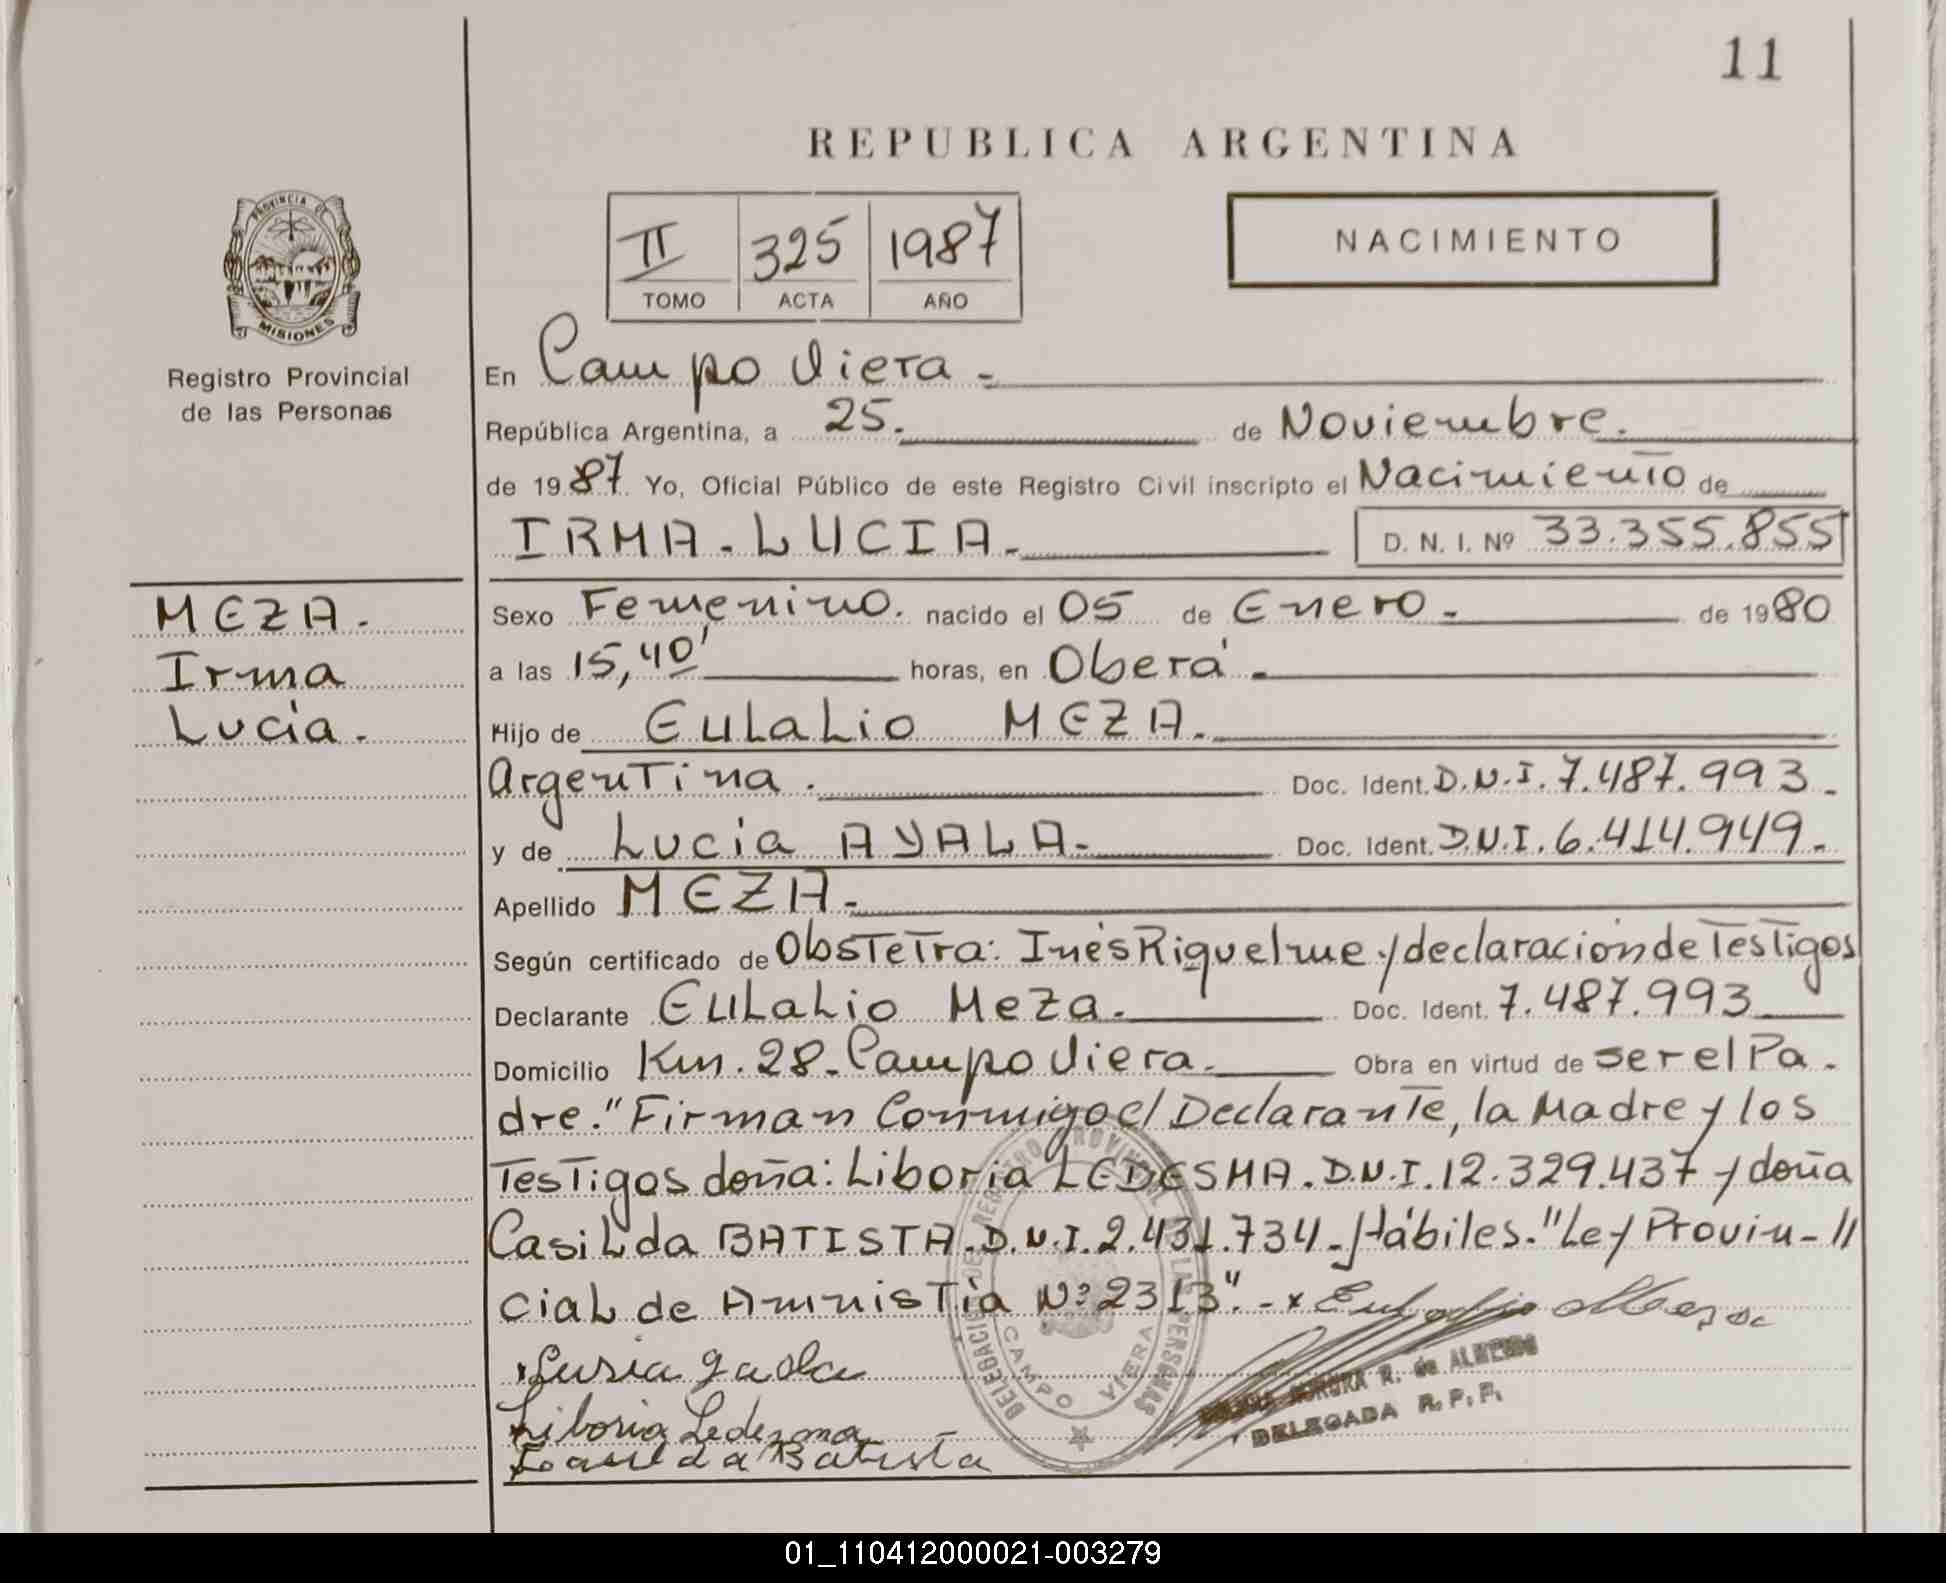 11
REPUBLICA ARGENTINA
PROVINCIA DE
MISIONES
Registro Provincial
de las Personas
II 325 1987
TOMO ACTA AÑO
NACIMIENTO
En Campo Viera.-
República Argentina, a 25. de Noviembre.
de 1987 Yo, Oficial Público de este Registro Civil inscripto el Nacimiento de
IRMA-LUCIA.- D. N. I. Nº 33.355.855
MEZA.
Irma
Lucia.
Sexo Femenino. nacido el 05 de Enero.- de 1980
a las 15,40' horas, en Oberá.-
Hijo de Eulalio MEZA.
Argentina. Doc. Ident. D.N.I. 7.487.993-
y de Lucia AYALA.- Doc. Ident. D.N.I. 6.414.949.-
Apellido MEZA.-
Según certificado de Obstetra: Inés Riquelme y declaración de Testigos
Declarante Eulalio Meza.- Doc. Ident. 7.487.993
Domicilio Km. 28-Campo Viera.- Obra en virtud de ser el Pa-
dre." Firman Conmigo el Declarante, la Madre y los
Testigos doña: Liboria LEDESMA. D.N.I. 12.329.437 y doña
Casilda BATISTA. D.N.I. 2.431.734-Hábiles."Ley Provin-//
cial de Amnistía Nº 2313".- x Eulalio Meza
Liboria Ledezma
Casilda Batista
DELEGACION DE REGISTRO PROVINCIAL DE LAS PERSONAS
CAMPO VIERA
AURORA R. de ALMEIDA
DELEGADA R. P. P.
01_110412000021-003279